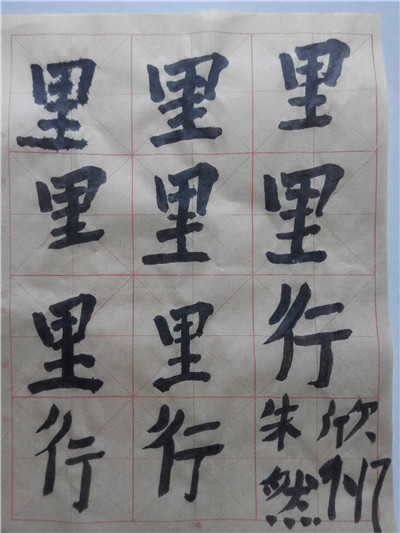 里里里
里里里
里里行
行行
朱欣
然